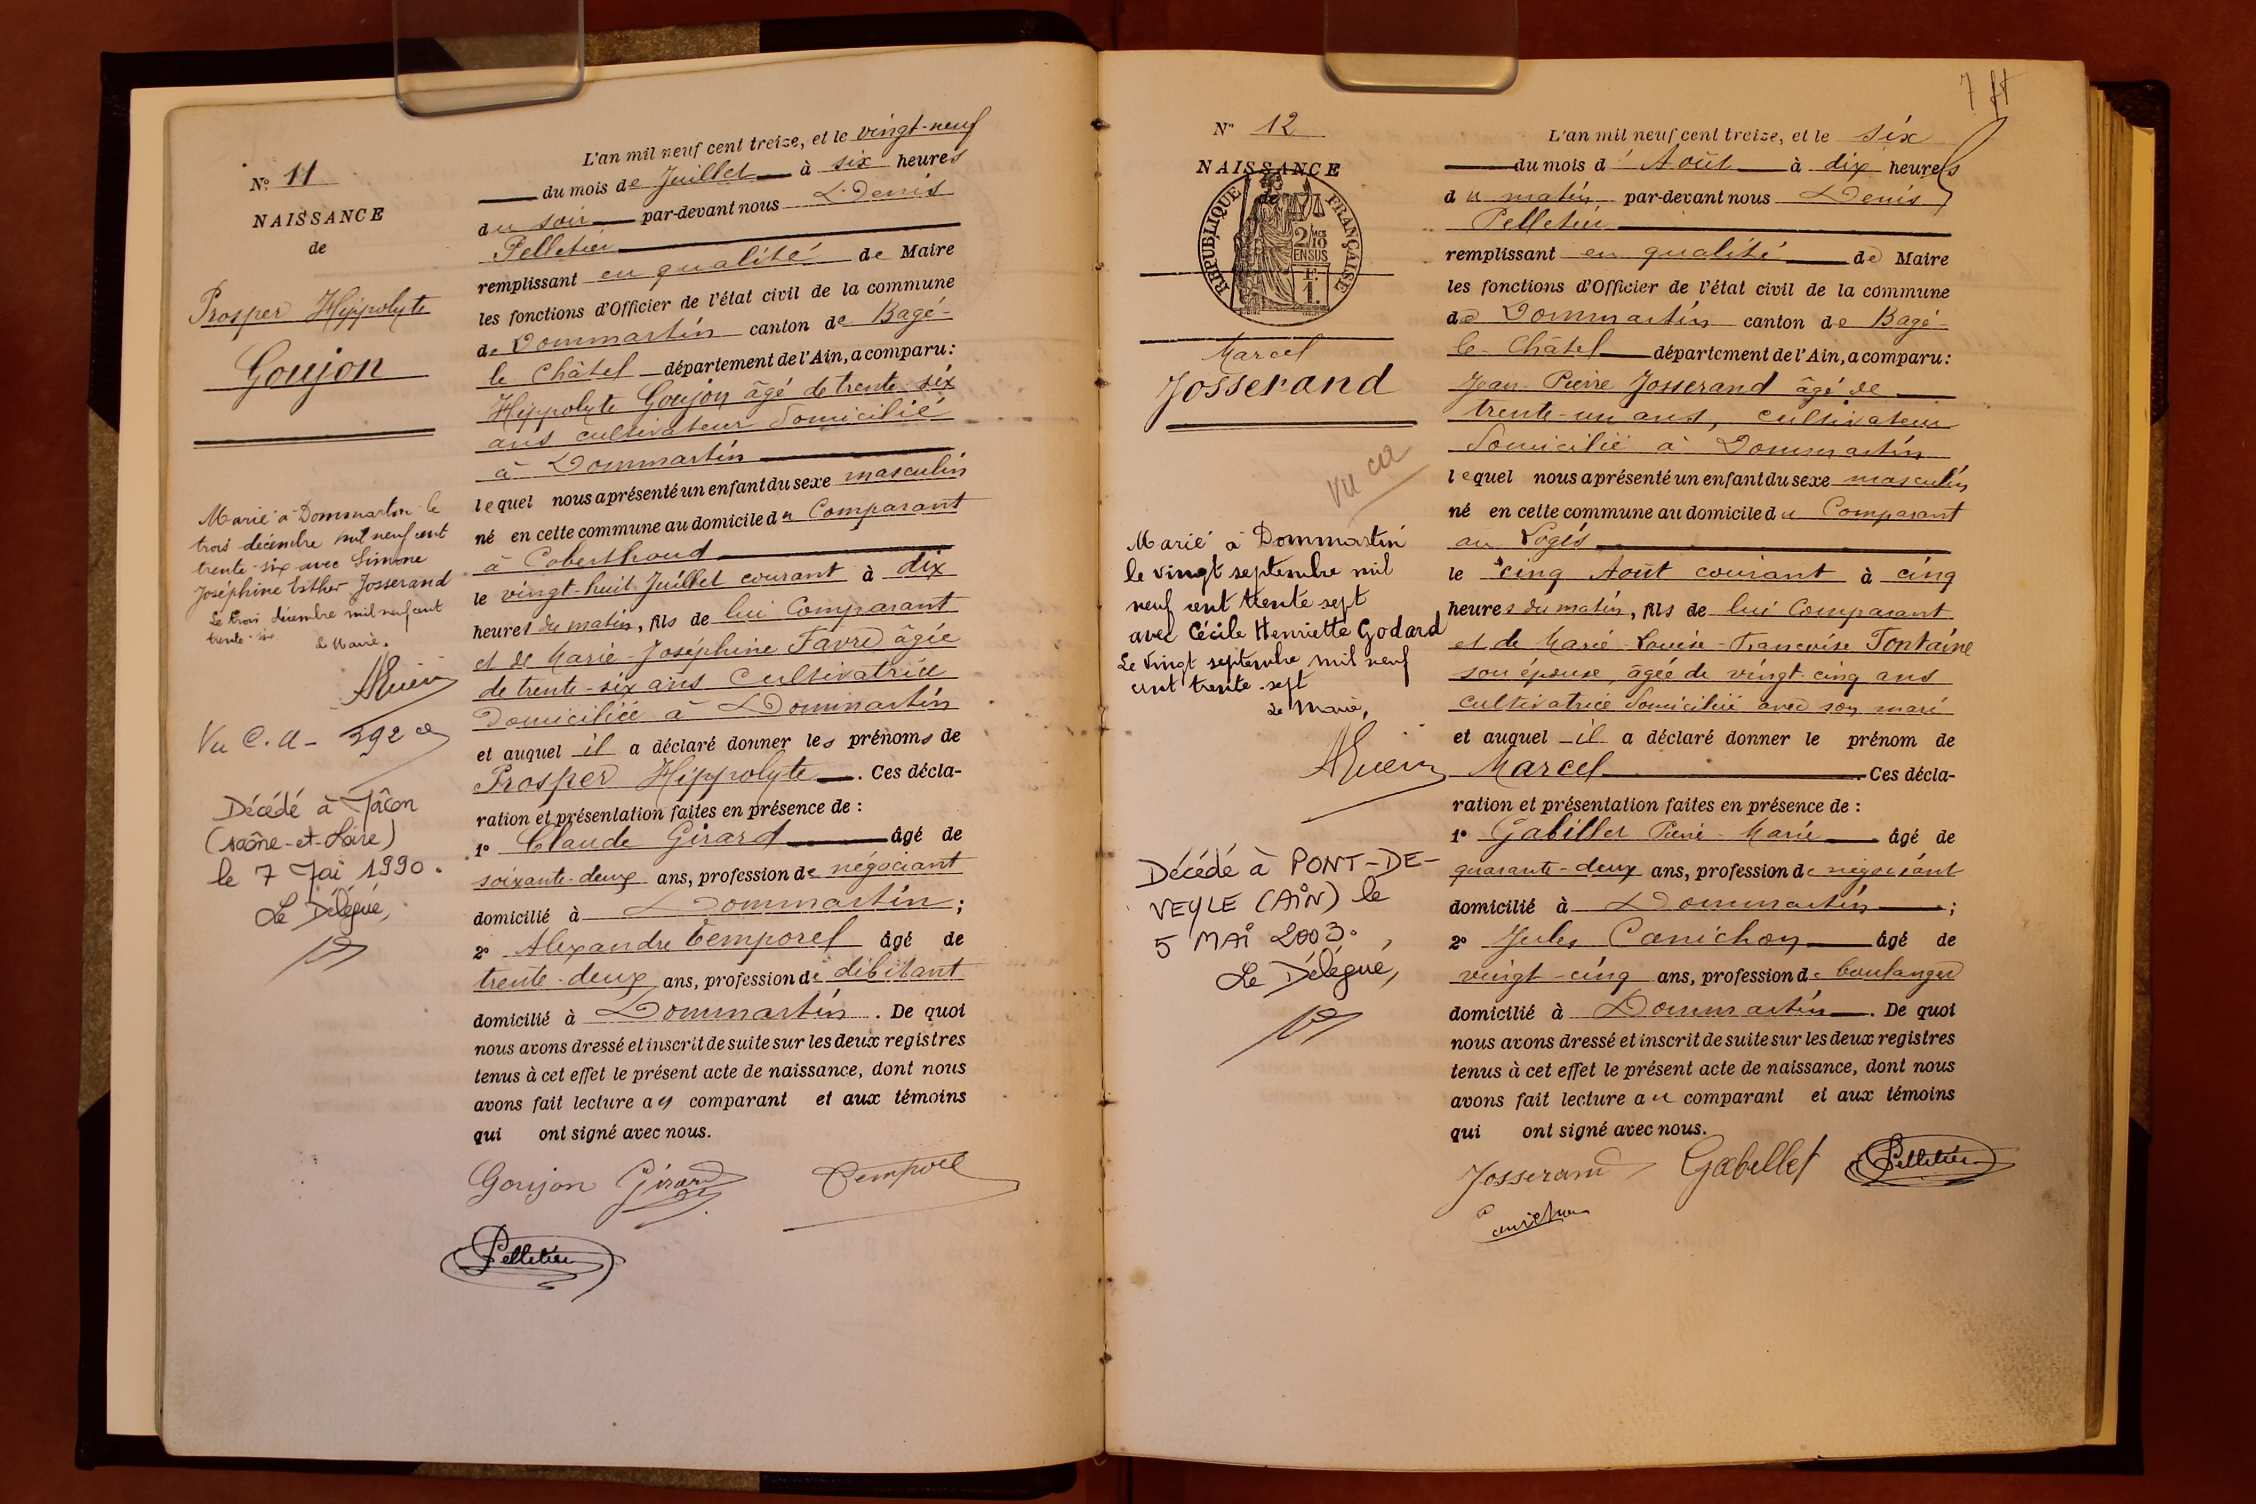 N° 11
NAISSANCE
de
Prosper Hippolyte
Goujon
Marié à Dommartin le
trois décembre mil neuf cent
trente-six avec Simone
Joséphine Esther Josserand
Le trois décembre mil neuf cent
trente-six
Le Maire.
Vu C.A - 392
Décédé à Mâcon
(Saône-et-Loire)
le 7 Mai 1990.
Le Délégué,
L'an mil neuf cent treize, et le vingt-neuf
du mois de Juillet à six heures
du soir par-devant nous Denis
Pelletier
remplissant en qualité de Maire
les fonctions d'Officier de l'état civil de la commune
de Dommartin canton de Bagé-
le Châtel département de l'Ain, a comparu:
Hippolyte Goujon âgé de trente-six
ans cultivateur domicilié
à Dommartin
lequel nous a présenté un enfant du sexe masculin
né en cette commune au domicile du Comparant
à Coberthoud
le vingt-huit Juillet courant à dix
heures du matin, fils de lui Comparant
et de Marie-Joséphine Favre âgée
de trente-six ans Cultivatrice
Domiciliée à Dommartin
et auquel il a déclaré donner les prénoms de
Prosper Hippolyte. Ces décla-
ration et présentation faites en présence de :
1° Claude Girard âgé de
soixante-deux ans, profession de négociant
domicilié à Dommartin ;
2° Alexandre Temporel âgé de
trente-deux ans, profession de débitant
domicilié à Dommartin. De quoi
nous avons dressé et inscrit de suite sur les deux registres
tenus à cet effet le présent acte de naissance, dont nous
avons fait lecture au comparant et aux témoins
qui ont signé avec nous.
Goujon Girard Temporel
Pelletier
7
N° 12
NAISSANCE
de
RÉPUBLIQUE FRANÇAISE
2/10
EN SUS
F.
1.
Marcel
Josserand
Vu ca
Marié à Dommartin
le vingt septembre mil
neuf cent trente sept
avec Cécile Henriette Godard
Le vingt septembre mil neuf
cent trente-sept
Le Maire,
Décédé à PONT-DE-
VEYLE (AIN) le
5 MAI 2003.
Le Délégué,
L'an mil neuf cent treize, et le six
du mois d'Août à dix heures
du matin par-devant nous Denis
Pelletier
remplissant en qualité de Maire
les fonctions d'Officier de l'état civil de la commune
de Dommartin canton de Bagé-
le-Châtel département de l'Ain, a comparu:
Jean-Pierre Josserand âgé de
trente-un ans, cultivateur
domicilié à Dommartin
lequel nous a présenté un enfant du sexe masculin
né en cette commune au domicile du Comparant
au Logis
le cinq Août courant à cinq
heures du matin, fils de lui Comparant
et de Marie-Louise-Françoise Fontaine
son épouse, âgée de vingt-cinq ans
cultivatrice domiciliée avec son mari
et auquel il a déclaré donner le prénom de
Marcel. Ces décla-
ration et présentation faites en présence de :
1° Gabillet Pierre-Marie âgé de
quarante-deux ans, profession de négociant
domicilié à Dommartin ;
2° Jules Canichon âgé de
vingt-cinq ans, profession de boulanger
domicilié à Dommartin. De quoi
nous avons dressé et inscrit de suite sur les deux registres
tenus à cet effet le présent acte de naissance, dont nous
avons fait lecture au comparant et aux témoins
qui ont signé avec nous.
Josserand Gabillet Pelletier
Canichon